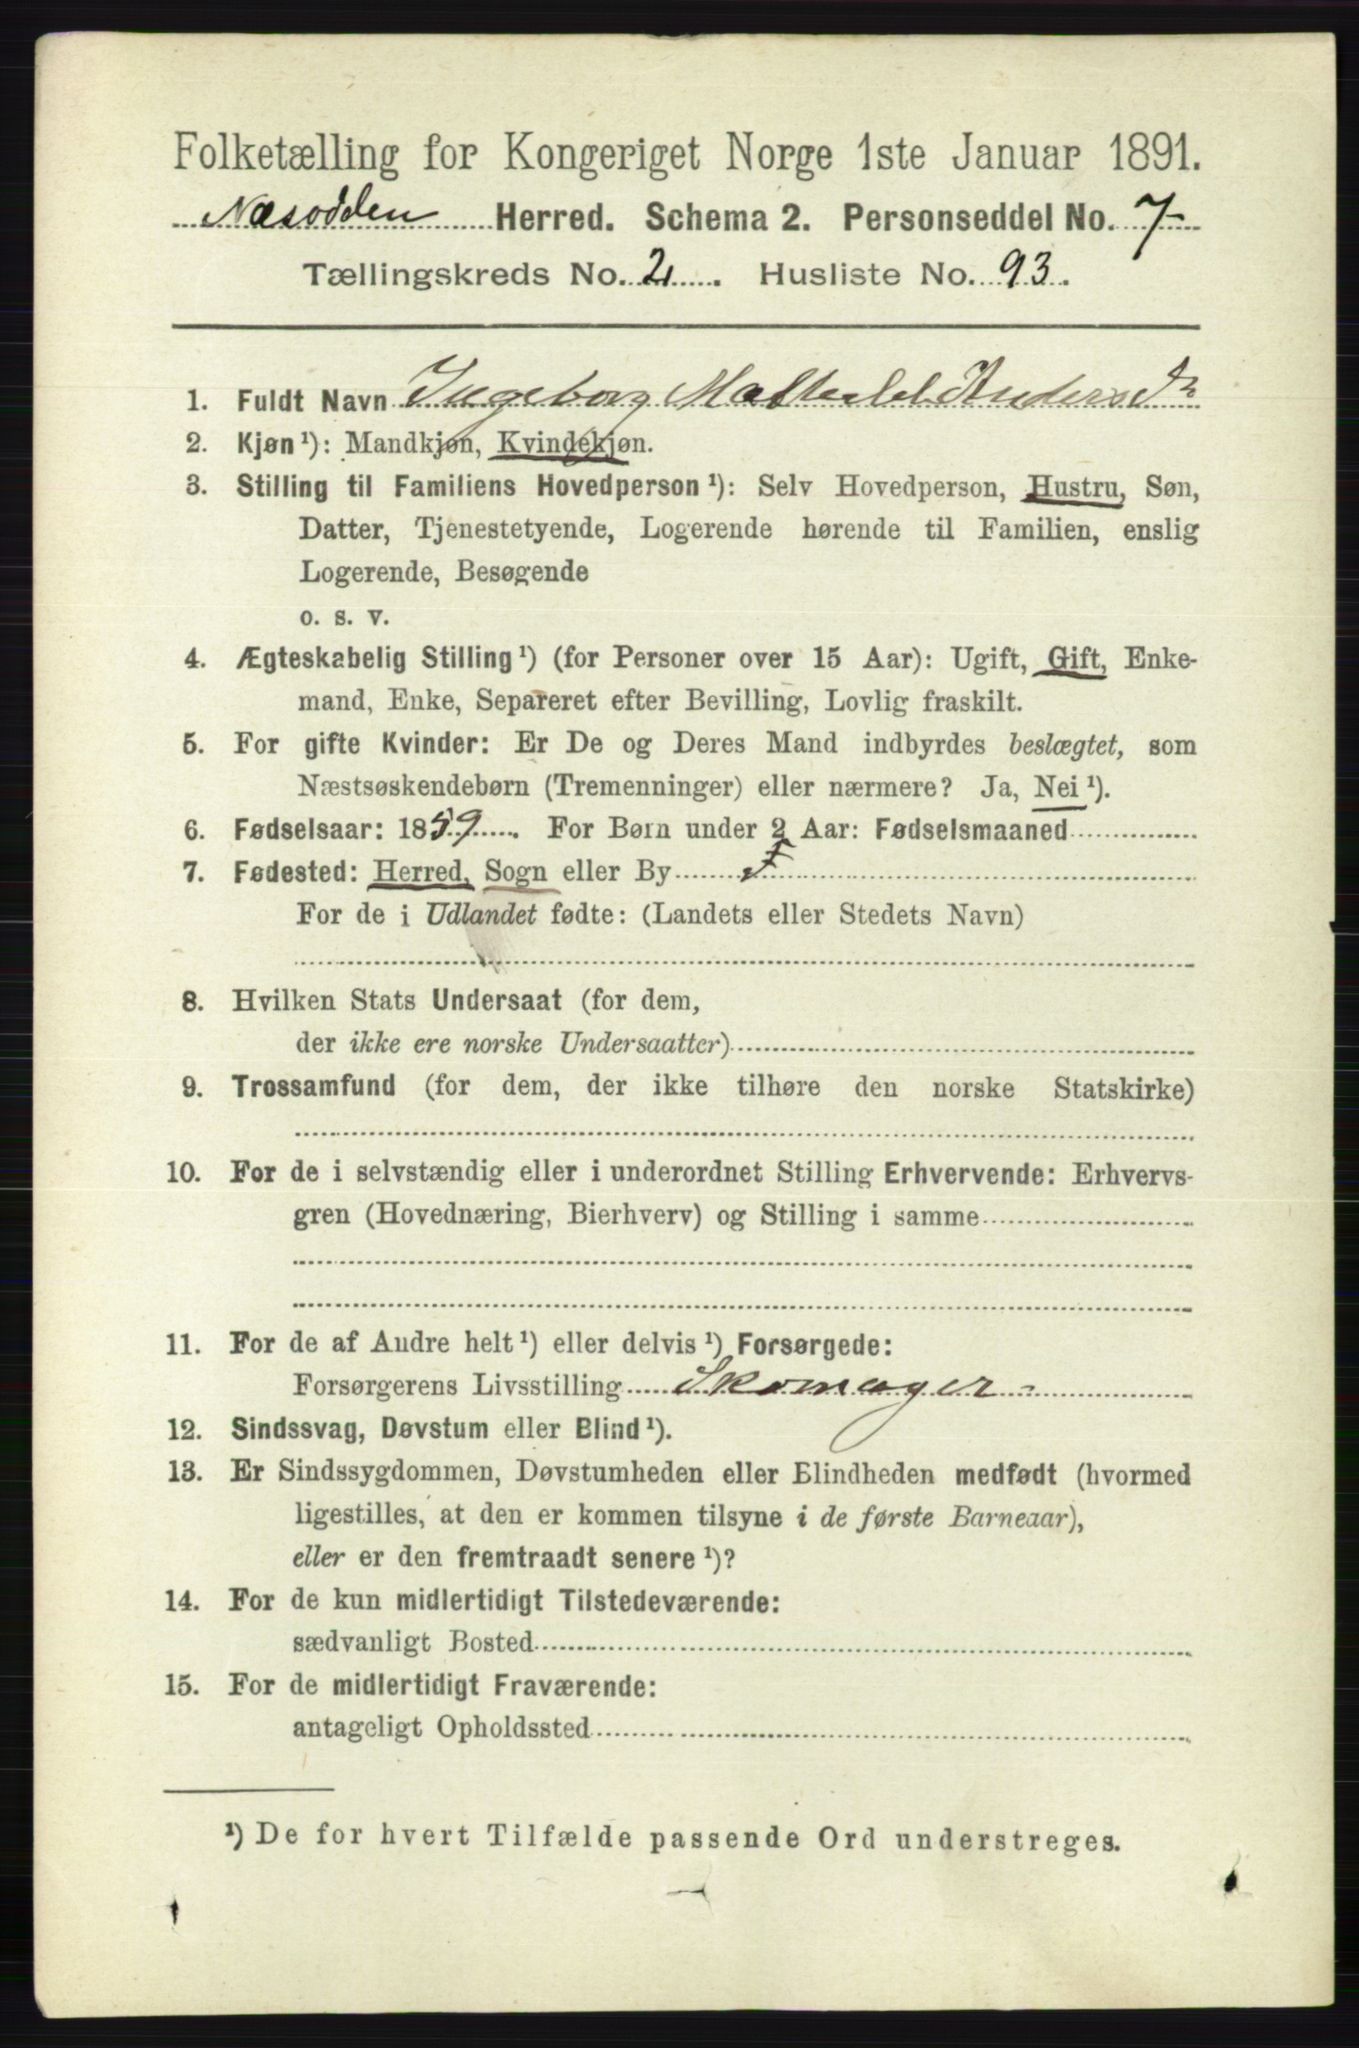 Folketælling for Kongeriget Norge 1ste Januar 1891.
Næsodden Herred. Schema 2. Personseddel No. 7
Tællingskreds No. 2. Husliste No. 93.
1. Fuldt Navn Ingeborg Mathilde Anders Dr
2. Kjøn ¹): Mandkjøn, Kvindekjøn.
3. Stilling til Familiens Hovedperson ¹): Selv Hovedperson, Hustru, Søn,
Datter, Tjenestetyende, Logerende hørende til Familien, enslig
Logerende, Besøgende
o. s. v.
4. Ægteskabelig Stilling ¹) (for Personer over 15 Aar): Ugift, Gift, Enke-
mand, Enke, Separeret efter Bevilling, Lovlig fraskilt.
5. For gifte Kvinder: Er De og Deres Mand indbyrdes beslægtet, som
Næstsøskendebørn (Tremenninger) eller nærmere? Ja, Nei ¹).
6. Fødselsaar: 1859. For Børn under 2 Aar: Fødselsmaaned
7. Fødested: Herred, Sogn eller By F
For de i Udlandet fødte: (Landets eller Stedets Navn)
8. Hvilken Stats Undersaat (for dem,
der ikke ere norske Undersaatter)
9. Trossamfund (for dem, der ikke tilhøre den norske Statskirke)
10. For de i selvstændig eller i underordnet Stilling Erhvervende: Erhvervs-
gren (Hovednæring, Bierhverv) og Stilling i samme
11. For de af Andre helt ¹) eller delvis ¹) Forsørgede:
Forsørgerens Livsstilling Skomager
12. Sindssvag, Døvstum eller Blind ¹).
13. Er Sindssygdommen, Døvstumheden eller Blindheden medfødt (hvormed
ligestilles, at den er kommen tilsyne i de første Barneaar),
eller er den fremtraadt senere ¹)?
14. For de kun midlertidigt Tilstedeværende:
sædvanligt Bosted
15. For de midlertidigt Fraværende:
antageligt Opholdssted
¹) De for hvert Tilfælde passende Ord understreges.